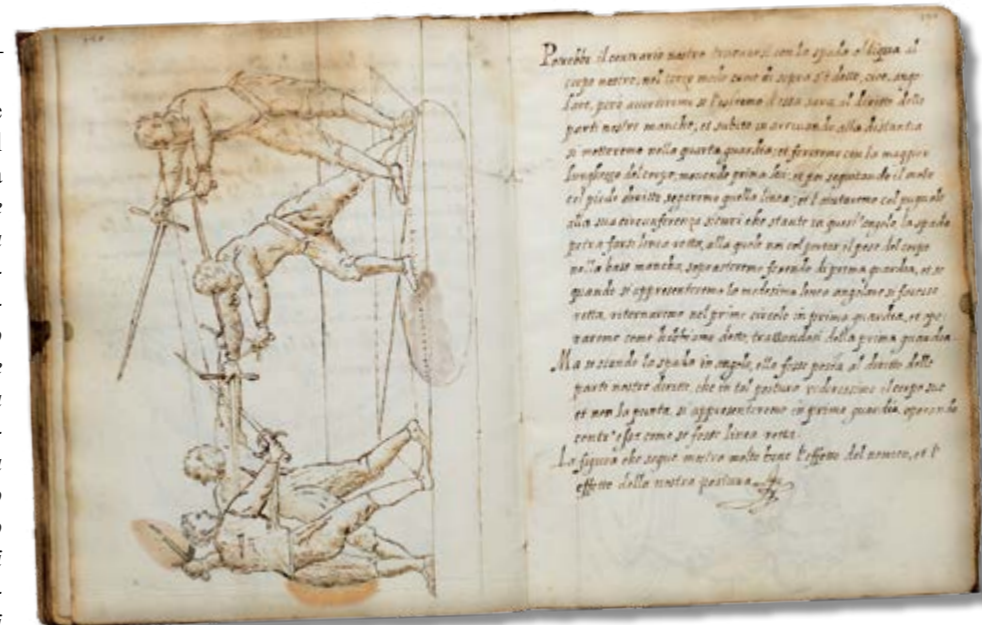 Potrebbe il contrario nostro trovarsi con la spada obliqua al
corpo nostro, nel terzo modo come di sopra s'è detto, cioè, ango-
lare, però avvertiremo se l'estremo d'essa sarà al diritto delle
parti nostre manche, et subito in arrivando alla distantia
si metteremo nella quarta guardia, et feriremo con la maggior
lunghezza del corpo, movendo prima lei, et poi seguitando il moto
col piede diritto, segaremo quella linea, et l'aiutaremo col pugnale
alla sua circonferenza sicuri che stante in quest'angolo, la spada
potrà farsi linea retta, alla quale noi col portar il peso del corpo
nella base manca, soprastaremo ferendo di prima guardia, et se
quando si appresentaremo la medesima linea angolare si facesse
retta, ritornaremo nel primo circolo in prima guardia, et ope-
raremo come habbiamo detto, trattandosi della prima guardia.
Ma se stando la spada in angolo, ella fosse posta al diritto delle
parte nostre diritte, che in tal postura vedressimo el corpo suo
et non la punta, si appresentaremo in prima guardia, operando
contr'essa come se fosse linea retta.
La figura che segue mostra molto bene l'effetto del nemico, et l'
effetto della nostra postura.